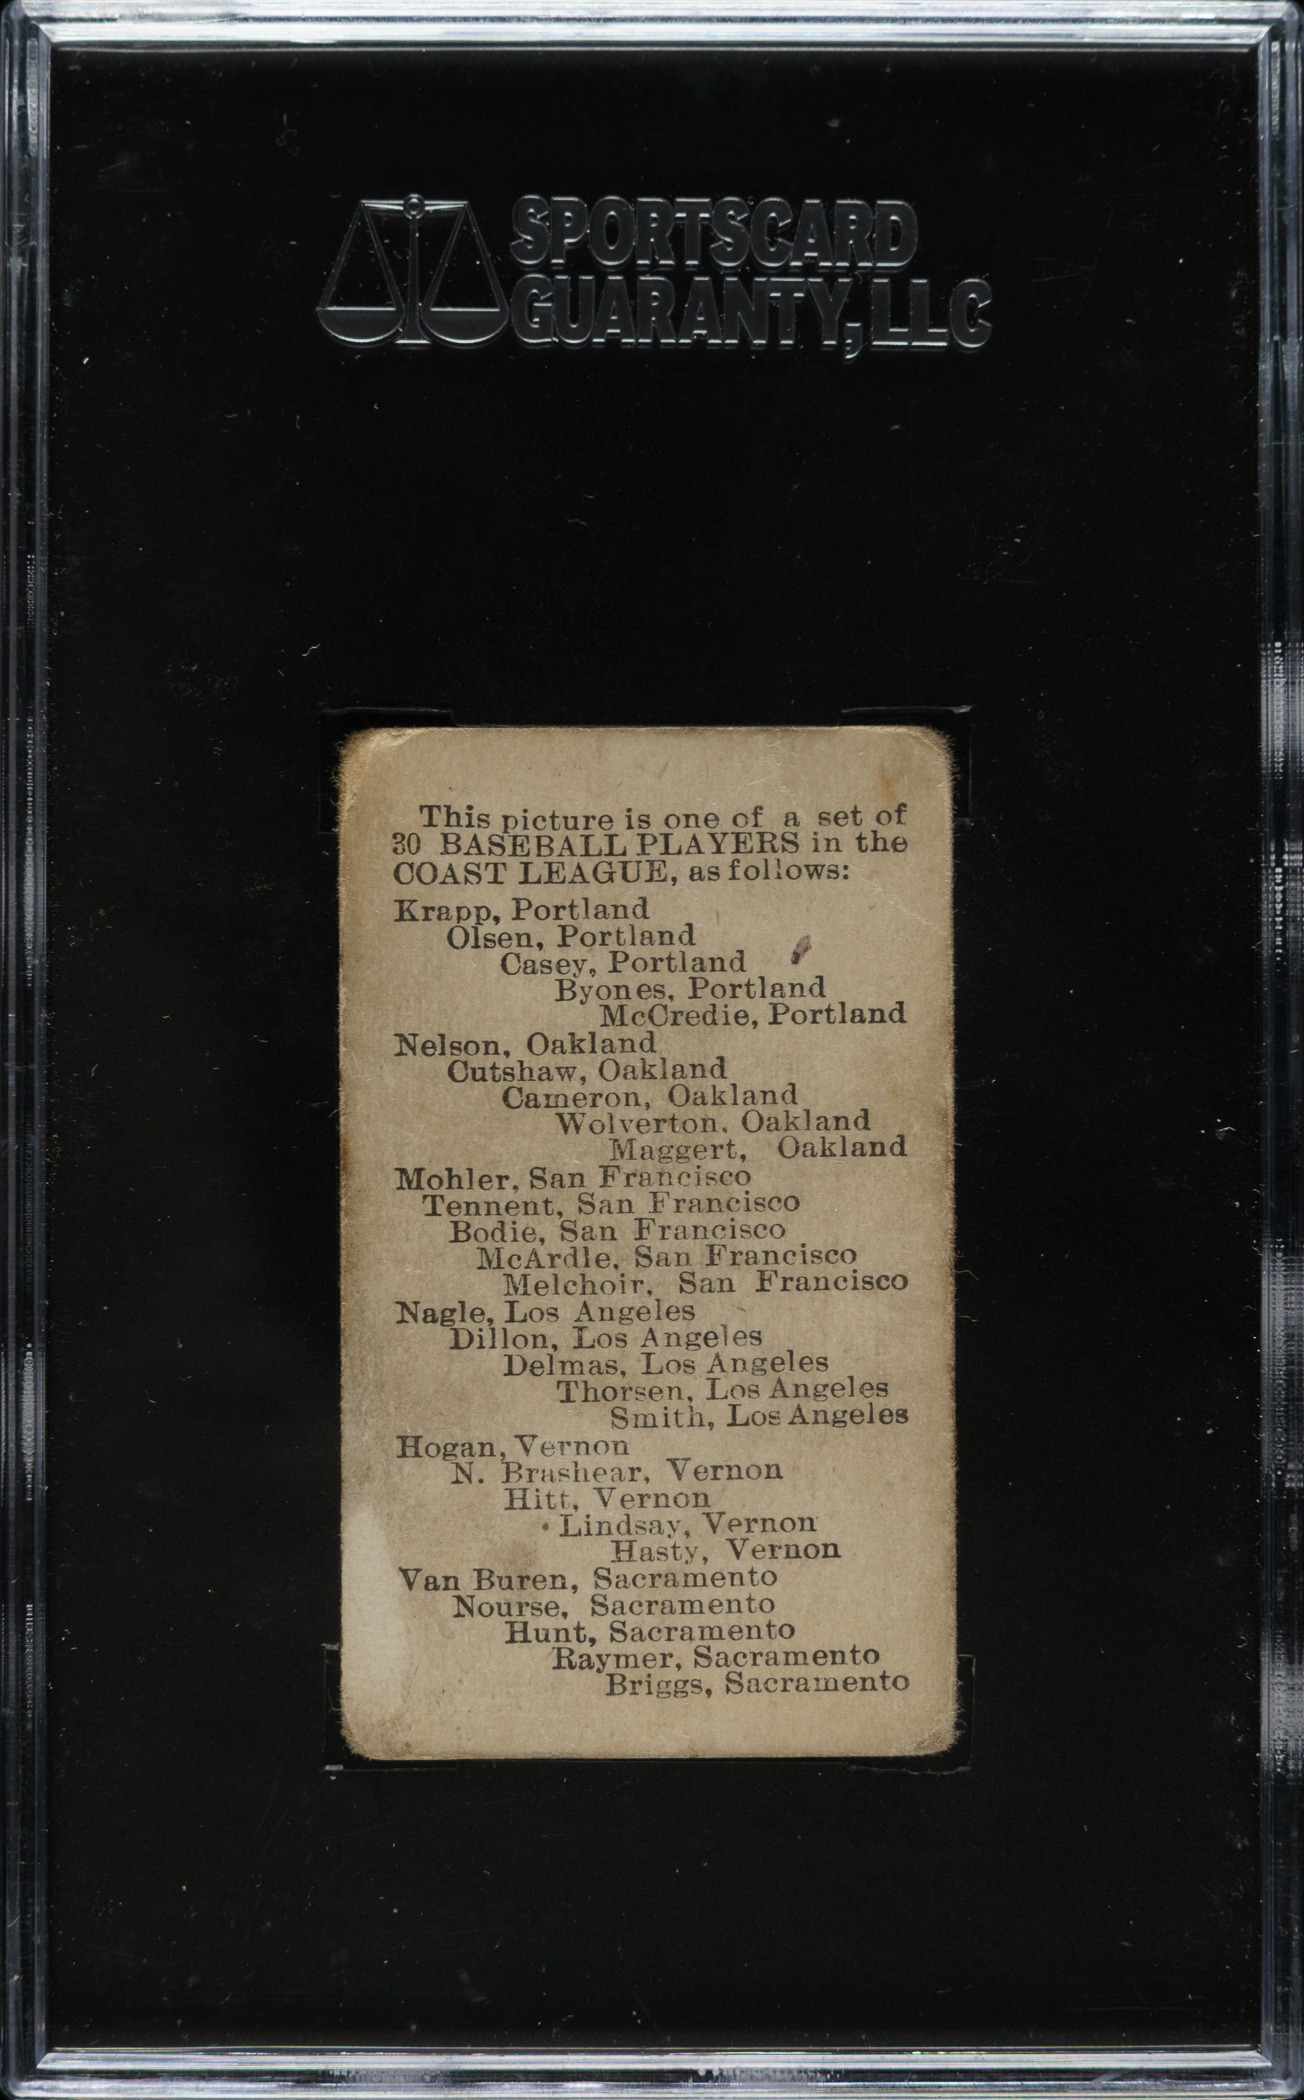 SPORTSCARD
GUARANTY, LLC
This picture is one of a set of
30 BASEBALL PLAYERS in the
COAST LEAGUE, as follows:
Krapp, Portland
Olsen, Portland
Casey, Portland
Byones, Portland
McCredie, Portland
Nelson, Oakland
Cutshaw, Oakland
Cameron, Oakland
Wolverton, Oakland
Maggert, Oakland
Mohler, San Francisco
Tennent, San Francisco
Bodie, San Francisco
McArdle, San Francisco
Melchoir, San Francisco
Nagle, Los Angeles
Dillon, Los Angeles
Delmas, Los Angeles
Thorsen, Los Angeles
Smith, Los Angeles
Hogan, Vernon
N. Brashear, Vernon
Hitt, Vernon
Lindsay, Vernon
Hasty, Vernon
Van Buren, Sacramento
Nourse, Sacramento
Hunt, Sacramento
Raymer, Sacramento
Briggs, Sacramento